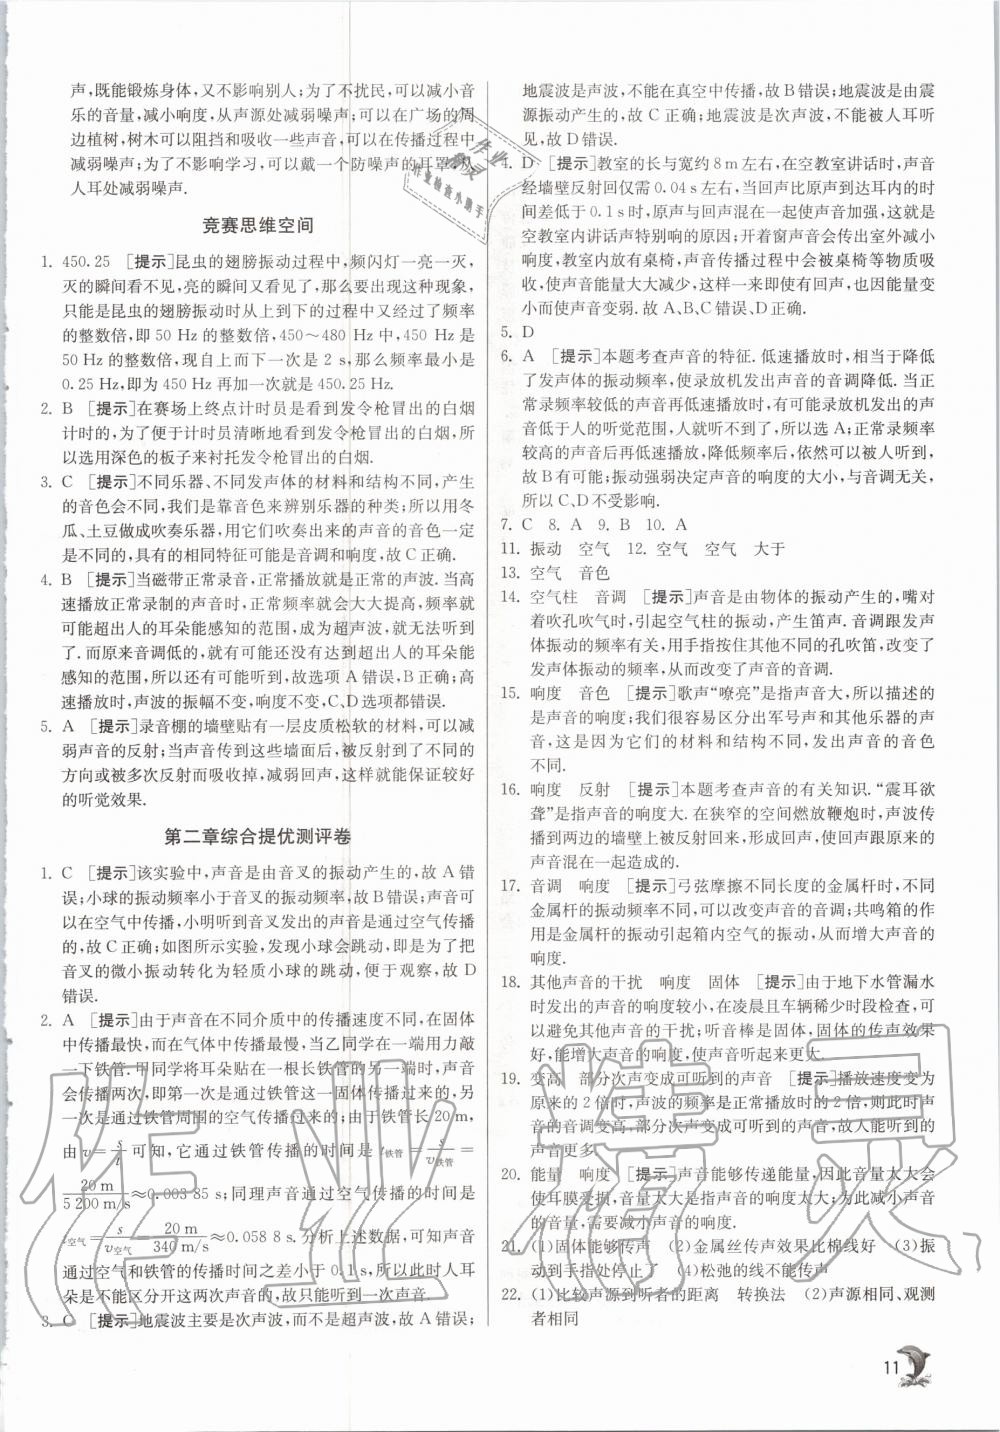 声,既能锻炼身体,又不影响别人;为了不扰民,可以减小音
乐的音量,减小响度,从声源处减弱噪声;可以在广场的周
边植树,树木可以阻挡和吸收一些声音,可以在传播过程中
减弱噪声;为了不影响学习,可以戴一个防噪声的耳罩,从
人耳处减弱噪声.
竞赛思维空间
1. 450.25 [提示]昆虫的翅膀振动过程中,频闪灯一亮一灭,
灭的瞬间看不见,亮的瞬间又看见了,为了要看到这种现象,
只能是昆虫的翅膀振动时从上到下的过程中又经过了频率
的整数倍,即 50 Hz 的整数倍,450～480 Hz 中,450 Hz 是
50 Hz 的整数倍,现自上而下一次是 2 s,那么频率最小是
0.25 Hz,即为 450 Hz 再加一次就是 450.25 Hz.
2. B [提示]在赛场上终点计时员是看到发令枪冒出的白烟
计时的,为了便于计时员清晰地看到发令枪冒出的白烟,所
以选用深色的板子来衬托发令枪冒出的白烟.
3. C [提示]不同乐器、不同发声体的材料和结构不同,产生
的音色会不同,我们是靠音色来辨别乐器的种类;所以用冬
瓜、土豆做成吹奏乐器,用它们吹奏出来的声音的音色一定
是不同的,具有的相同特征可能是音调和响度,故 C 正确.
4. B [提示]当磁带正常录音,正常播放就是正常的声波.当高
速播放正常录制的声音时,正常频率就会大大提高,频率就
可能超出人的耳朵能感知的范围,成为超声波,就无法听到
了.而原来音调低的,就可能没有超出人的耳朵能
感知的范围,所以还有可能听到,故选项 A 错误,B 正确;高
速播放时,声波的振幅不变,响度不变,C、D选项都错误.
5. A [提示]录音棚的墙壁贴有一层皮质松软的材料,可以减
弱声音的反射;当声音传到这些墙面后,被反射到了不同的
方向或被多次反射而吸收掉,减弱回声,这样就能保证较好
的听觉效果.
第二章综合提优测评卷
1. C [提示]该实验中,声音是由音叉的振动产生的,故 A 错
误;小球的振动频率小于音叉的振动频率,故B错误;声音可
以在空气中传播,小明听到音叉发出的声音是通过空气传播
的,故 C 正确;如图所示实验,发现小球会跳动,即是为了把
音叉的微小振动转化为轻质小球的跳动,便于观察,故 D
错误.
2. A [提示]由于声音在不同介质中的传播速度不同,在固体
中传播最快,而在气体中传播最慢,当乙同学在一端用力敲一
下铁管.甲同学将耳朵贴在一根长铁管的另一端时,声音
会传播两次,即第一次是通过铁管这一固体传播过来的,另
一次是通过铁管周围的空气传播过来的;由于铁管长 20 m,
由 v=s/t 可知,它通过铁管传播的时间是 t铁管=s/v铁管=
20 m/5 200 m/s≈0.003 85 s;同理声音通过空气传播的时间是
t空气=s/v空气=20 m/340 m/s≈0.058 8 s.分析上述数据,可知声音
通过空气和铁管的传播时间之差小于 0.1 s,所以此时人耳
朵是不能区分开这两次声音的,故只能听到一次声音.
3. C [提示]地震波主要是次声波,而不是超声波,故 A 错误;
地震波是声波,不能在真空中传播,故B错误;地震波是由震
源振动产生的,故 C 正确;地震波是次声波,不能被人耳听
见,故 D 错误.
4. D [提示]教室的长与宽约 8 m 左右,在空教室讲话时,声音
经墙壁反射回仅需 0.04 s 左右,当回声比原声到达耳内的时
间差低于0.1 s时,原声与回声混在一起使声音加强,这就是
空教室内讲话声特别响的原因;开着窗声音会传出室外减小
响度,教室内放有桌椅,声音传播过程中会被桌椅等物质吸
收,使声音能量大大减少,这样一来更加有效,因此能量变
小而使声音变弱.故A、B、C错误,D正确.
5. D
6. A [提示]本题考查声音的特征.低速播放时,相当于降低
了发声体的振动频率,使录放机发出声音的音调降低.当正
常录频率较低的声音再低速播放时,有可能录放机发出的声音
低于人的听觉范围,人就听不到了,所以选A;正常录频率
较高的声音后再低速播放,频率降低后,依然可以被人听到,
故 B 有可能;振动强弱决定声音的响度的大小,与音调无关,
所以 C、D不受影响.
7. C 8. A 9. B 10. A
11. 振动 空气 12. 空气 空气 大于
13. 空气 音色
14. 空气柱 音调 [提示]声音是由物体的振动产生的,嘴对
着吹孔吹气时,引起空气柱的振动,产生笛声.音调跟发声
体振动的频率有关,用手指按住其他不同的孔吹笛,改变了
发声体振动的频率,从而改变了声音的音调.
15. 响度 音色 [提示]歌声“嘹亮”是指声音大,所以描述的
是声音的响度;我们很容易区分出军号声和其他乐器的声
音,这是因为它们的材料和结构不同,发出声音的音色
不同.
16. 响度 反射 [提示]本题考查声音的有关知识.“震耳欲
聋”是指声音的响度大.在狭窄的空间燃放鞭炮时,声波传
播到两边的墙壁上被反射回来,形成回声,使回声跟原来的
声音混在一起造成的.
17. 音调 响度 [提示]弓弦摩擦不同长度的金属杆时,不同
金属杆的振动频率不同,可以改变声音的音调;共鸣箱的作
用是金属杆的振动引起箱内空气的振动,从而增大声音的
响度.
18. 其他声音的干扰 响度 固体 [提示]由于地下水管漏水
时发出的声音的响度较小,在凌晨且车辆稀少时段检查,可
以避免其他声音的干扰;听音棒是固体,固体的传声效果
好,能增大声音的响度,使声音听起来更大.
19. 变高 部分次声变成可听到的声音 [提示]播放速度变为
原来的 2 倍时,声波的频率是正常播放时的 2 倍,则此时声
音的音调变高,部分次声变成可听到的声音,故人能听到的
声音更多.
20. 能量 响度 [提示]声音能够传递能量,因此音量太大会
使耳膜受损,音量太大是指声音的响度大;为此减小声音
的音量,需要减小声音的响度.
21. (1)固体能够传声 (2)金属丝传声效果比棉线好 (3)振
动到手指处停止了 (4)松弛的线不能传声
22. (1)比较声源到听者的距离 转换法 (2)声源相同、观测
者相同
11